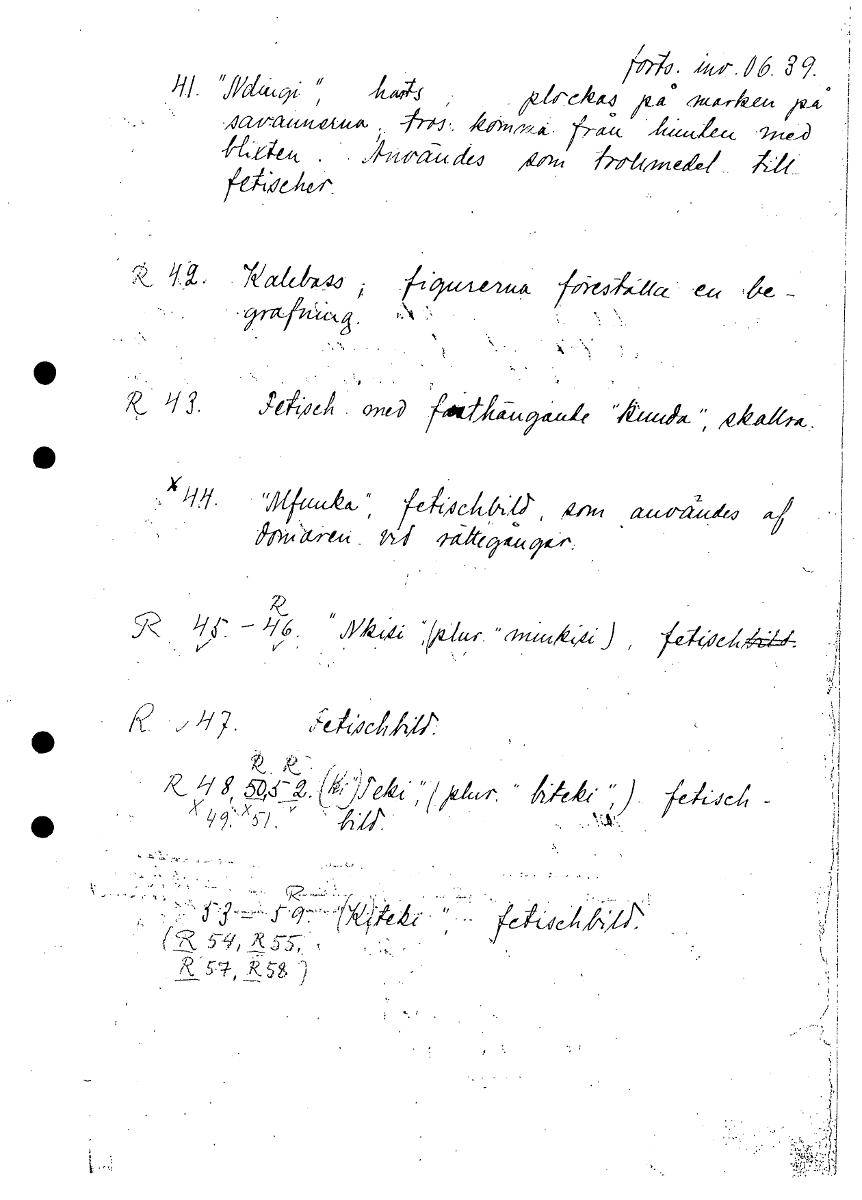 forts. inv. 06.39.
41. "Ndingi", harts, plockas på marken på
savannerna, tros komma från himlen med
blixten. Användes som trolmedel till
fetischer.
R 42. Kalebass; figurerna föreställa en be-
grafning.
R 43. Fetisch med fasthängande "Kunda", skallra.
x 44. "Mfunka", fetischbild, som användes af
domaren vid rättegångar.
R 45. - R 46. "Nkisi" (plur. "minkisi), fetischbild.
R 47. Fetischbild.
R R
R 48, 50, 52. (Ki") Teki", (plur. "biteki",) fetisch-
x 49. x 51. bild.
R
53 - 59. (Kiteki", fetischbild.
(R 54, R 55,
R 57, R 58)